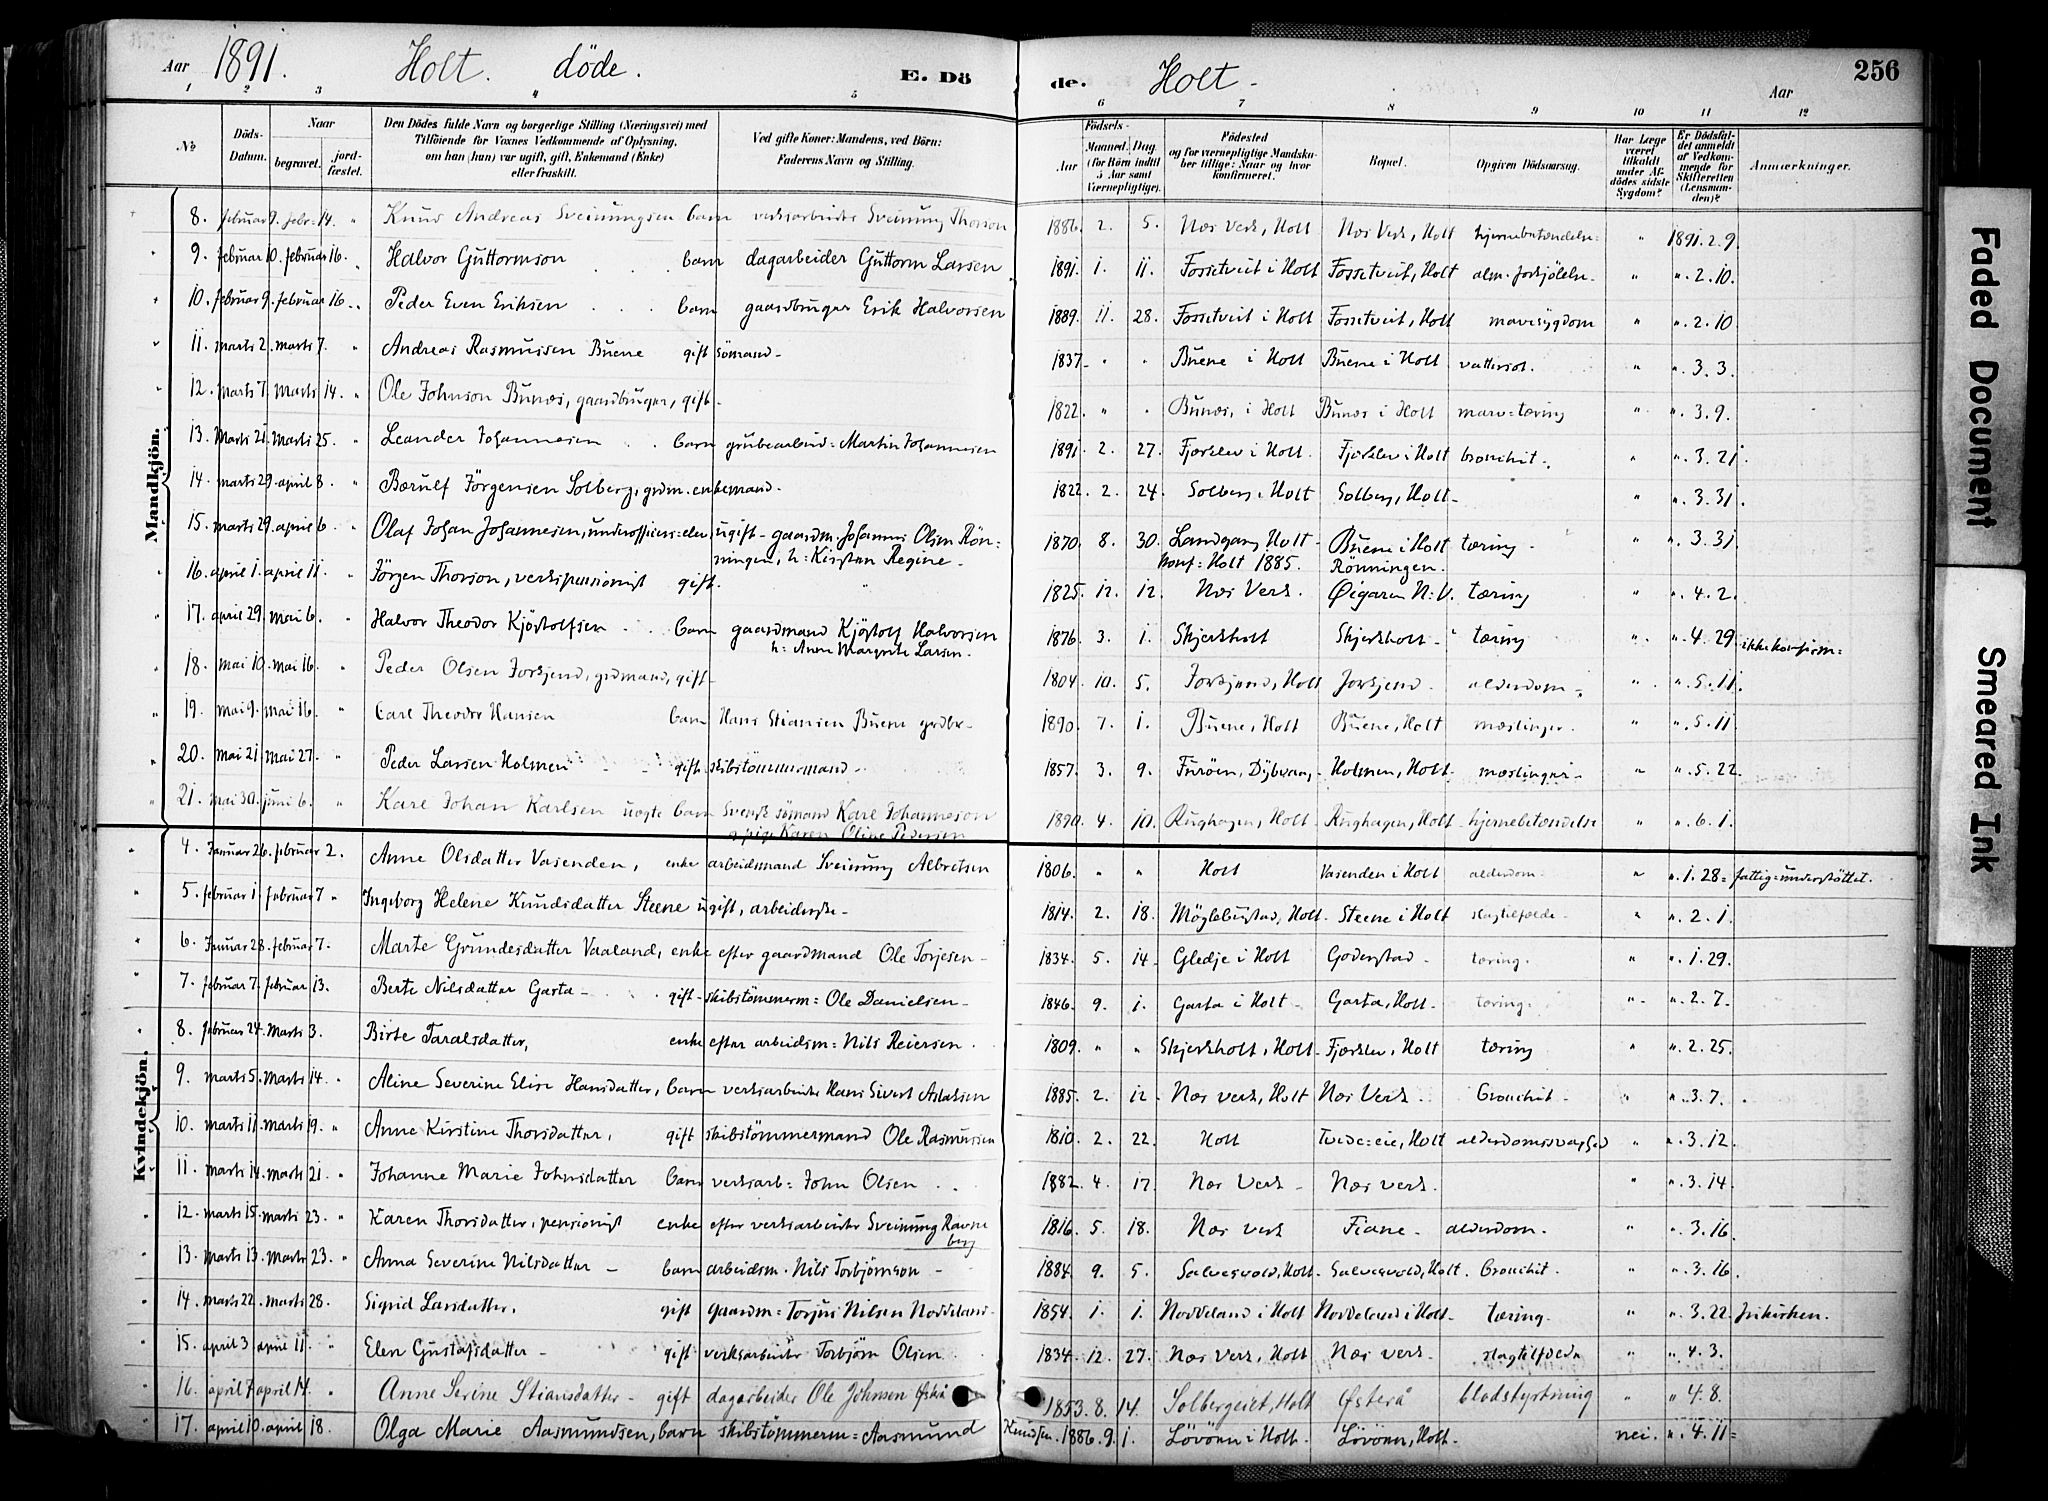 Aar 1891. Holt. döde. E. Dö de. Holt - Aar 256
1 2 3 4 5 6 7 8 9 10 11 12
№ Döds-Datum. Naar begravet. jord-fæstet. Den Dödes fulde Navn og borgerlige Stilling (Næringsvei) med Tilföiende for Voxnes Vedkommende af Oplysning, om han (hun) var ugift, gift, Enkemand (Enke) eller fraskilt. Ved gifte Koner: Mandens, ved Börn: Faderens Navn og Stilling. Födsels- Aar Maaned. Dag. (for Börn indtil 5 Aar samt Værnepligtige). Födested og for værnepligtige Mandskaber tillige: Naar og hvor konfirmeret. Bopæl. Opgiven Dödsaarsag. Har Læge været tilkaldt under Afdödes sidste Sygdom? Er Dödsfaldet anmeldt af Vedkommende for Skifteretten (Lensmanden)? Anmærkninger.
Mandkjön.
8. februar 9. febr. 14. " Knud Andreas Sveinungsen barn verksarbeider Sveinung Thorson 1886. 2. 5. Næs Verk, Holt Næs Verk, Holt hjernebetændelse " 1891.2.9.
9. februar 10. februar 16. " Halvor Guttormson barn dagarbeider Guttorm Larsen 1891. 1. 11. Fossetveit i Holt Fossetveit, Holt alm. forkjølelse " ".2.10.
10. februar 9. februar 16. " Peder Even Eriksen barn gaardbruger Erik Halvorsen 1889. 11. 28. Fossetveit i Holt Fossetveit, Holt mavesygdom " ".2.10
11. marts 2. marts 7. " Andreas Rasmussen Buene gift sömand- 1837. " " Buene i Holt Buene i Holt vattersot. " ".3.3.
12. marts 7. Marts 14. " Ole Johnson Bunæs, gaardbruger, gift- 1822. " " Bunæs, i Holt Bunæs i Holt marv=tæring " ".3.9.
13. Marts 21. Marts 25. " Leander Johannesen barn grubearbeid= Martin Johannesen 1891. 2. 27. Fjærslev i Holt. Fjærslev i Holt bronchit. " ".3.21.
14. marts 29. april 8. " Bærulf Jörgensen Solberg, grdm. enkemand. 1822. 2. 24. Solberg, Holt Solberg, Holt- " ".3.31.
15. marts 29. april 6. " Olaf Johan Johannesen, underofficers=elev ugift - gaardm. Johannes Olsen Rön= 1870. 8. 30. Landgang Holt- Buene i Holt tæring - " ".3.31.
ningen, h= Kirsten Regine- konf= Holt 1885. Rönningen.
16. april 1. april 11. " Jörgen Thorson, verkspensionist gift. " 1825. 12. 12. Næs Verk. Øigaren N:V. tæring " ".4.2.
17. april 29. mai 6. " Halvor Theodor Kjöstolfsen barn gaardmand Kjöstolf Halvorsen 1876. 3. 1. Skjerkholt Skjerkholt - tæring " ".4.29 ikke konfirm=
h= Anne Margrete Larsen.
18. mai 10. mai 16. " Peder Olsen Torsjend, grdmand, gift- 1804. 10. 5. Torsjend, Holt Torsjend. alderdom- " ".5.11.
19. mai 9. mai 16. " Carl Theodor Hansen barn Hans Stiansen Buene grdbr- 1890. 7. 1. Buene, Holt Buene, Holt mæslinger. " ".5.11
20. mai 21. mai 27. " Peder Larsen Holmen gift skibstömmermand- 1857. 3. 9. Furöen, Dybvaag- Holmen, Holt. mæslinger- " ".5.22.
21. mai 30. juni 6. " Karl Johan Karlsen uægte barn Svensk sömand Karl Johanneson 1890. 4. 10. Rughagen, Holt Rughagen, Holt- hjernebetændelse " ".6.1.
og pige Karen Oline Pedersen
Kvindekjön.
4. Januar 26. februar 2. Anne Olsdatter Vasenden, enke arbeidsmand Sveinung Albretsen 1806. " " Holt Vasenden i Holt alderdom. " ".1.28= fattig=understöttet.
5. februar 1. februar 7 " Ingeborg Helene Knudsdatter Steene ugift, arbeiderske- 1814. 2. 18. Möglebustad, Holt. Steene i Holt slagtilfælde- " ".2.1.
6. Januar 28. februar 7. Marte Grundesdatter Vaaland, enke efter gaardmand Ole Torjesen- 1834. 5. 14. Gledje i Holt Goderstad- tæring. " ".1.29.
7. februar 7. februar 13. Berte Nilsdatter Garta- gift- skibstömmerm= Ole Danielsen- 1846. 9. 1. Garta i Holt- Garta, Holt- tæring= " ".2.7.
8. februar 24. Marts 3. Birte Taralsdatter, enke efter arbeidsm= Nils Reiersen 1809. " " Skjerkholt, Holt- Fjærslev, Holt tæring " ".2.25.
9. marts 5. Marts 14. " Aline Severine Elise Hansdatter, barn verksarbeider Hans Sivert Aslaksen 1885. 2. 12. Næs verk, Holt Næs Verk. bronchit- " ".3.7.
10. marts 11. marts 19. " Anne Kirstine Thorsdatter, gift skibstömmermand Ole Rasmussen 1810. 2. 22. Holt Tvede=eie, Holt alderdomssvaghed " ".3.12.
11. marts 14. marts 21. " Johanne Marie Johnsdatter barn verksarb= John Olsen 1882. 4. 17. Næs Verk- Næs verk. " ".3.14.
12. marts 15. marts 23. " Karen Thorsdatter, pensionist enke efter verksarbeider Sveinung Ravne 1816. 5. 18. Næs verk Fiane- alderdom. " ".3.16.
berg
13. marts 13. Marts 23. " Anna Severine Nilsdatter - barn arbeidsm. Nils Torbjörnson - 1884. 9. 5. Salvesvold, Holt. Salvesvold, Holt. bronchit. " ".3.16.
14. marts 22. marts 28. Sigrid Larsdatter, gift gaardm= Torjus Nilsen Noddeland- 1854. 1. 1. Noddeland i Holt Noddeland i Holt- tæring- " ".3.22. frikirken.
15. april 3 april 11. " Elen Gustafsdatter - gift verksarbeider Torbjörn Olsen 1834. 12. 27. Næs Verk, Holt Næs verk- slagtilfælde " ".4.3.
16. april 7 april 14. " Anne Serine Stiansdatter- gift dagarbeider Ole Johnsen Østerå 1853. 8. 14. Solbergeiet, Holt Østerå blodstyrtning " "4.8.
17. april 10. april 18. Olga Marie Aasmundsen, barn skibstömmerm= Aasmund Knudsen. 1886. 9. 1. Lövöen i Holt- Lövöen, Holt- nei. ".4.11=
Faded Document
Smeared Ink